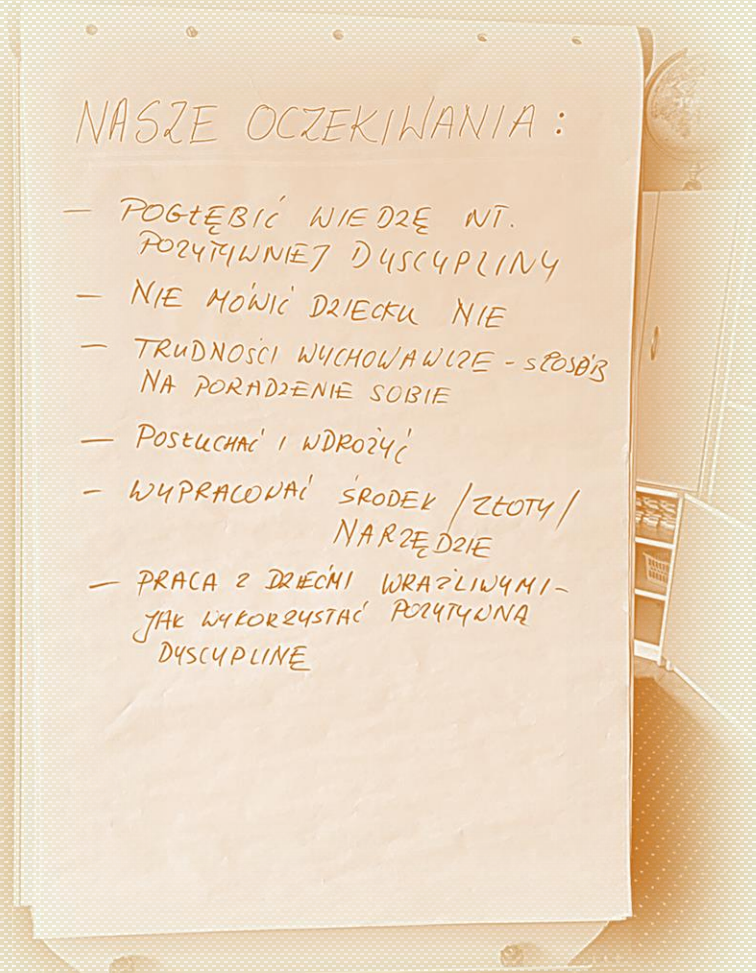 NASZE OCZEKIWANIA :
– POGŁĘBIĆ WIEDZĘ NT.
POZYTYWNEJ DYSCYPLINY
– NIE MÓWIĆ DZIECKU NIE
– TRUDNOŚCI WYCHOWAWCZE - SPOSÓB
NA PORADZENIE SOBIE
– POSŁUCHAĆ I WDROŻYĆ
– WYPRACOWAĆ ŚRODEK /ZŁOTY/
NARZĘDZIE
– PRACA Z DZIEĆMI WRAŻLIWYMI -
JAK WYKORZYSTAĆ POZYTYWNĄ
DYSCYPLINĘ